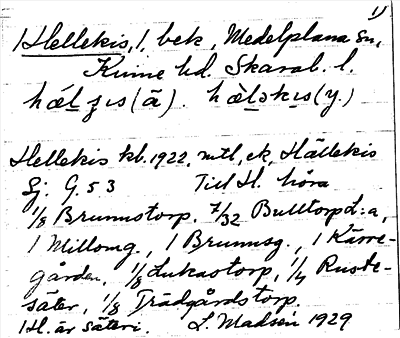 1)
Hellekis, 1. bek, Medelplana sn,
Kinne hd. Skarab. l.
hǽlʒıs (ä). hæ̀ləkıs (y.)
Hellekis kb. 1922, mtl, ek, Hällekis
Sj, G. 53 Till H. höra
1/8 Brunnstorp. 7/32 Bulltorp L:a,
1 Millomg., 1 Brunnsg., 1 Kärre-
gården, 1/8 Lukastorp, 1/4 Ruste-
säter, 1/8 Trädgårdstorp.
H. är säteri. L. Madsén 1929